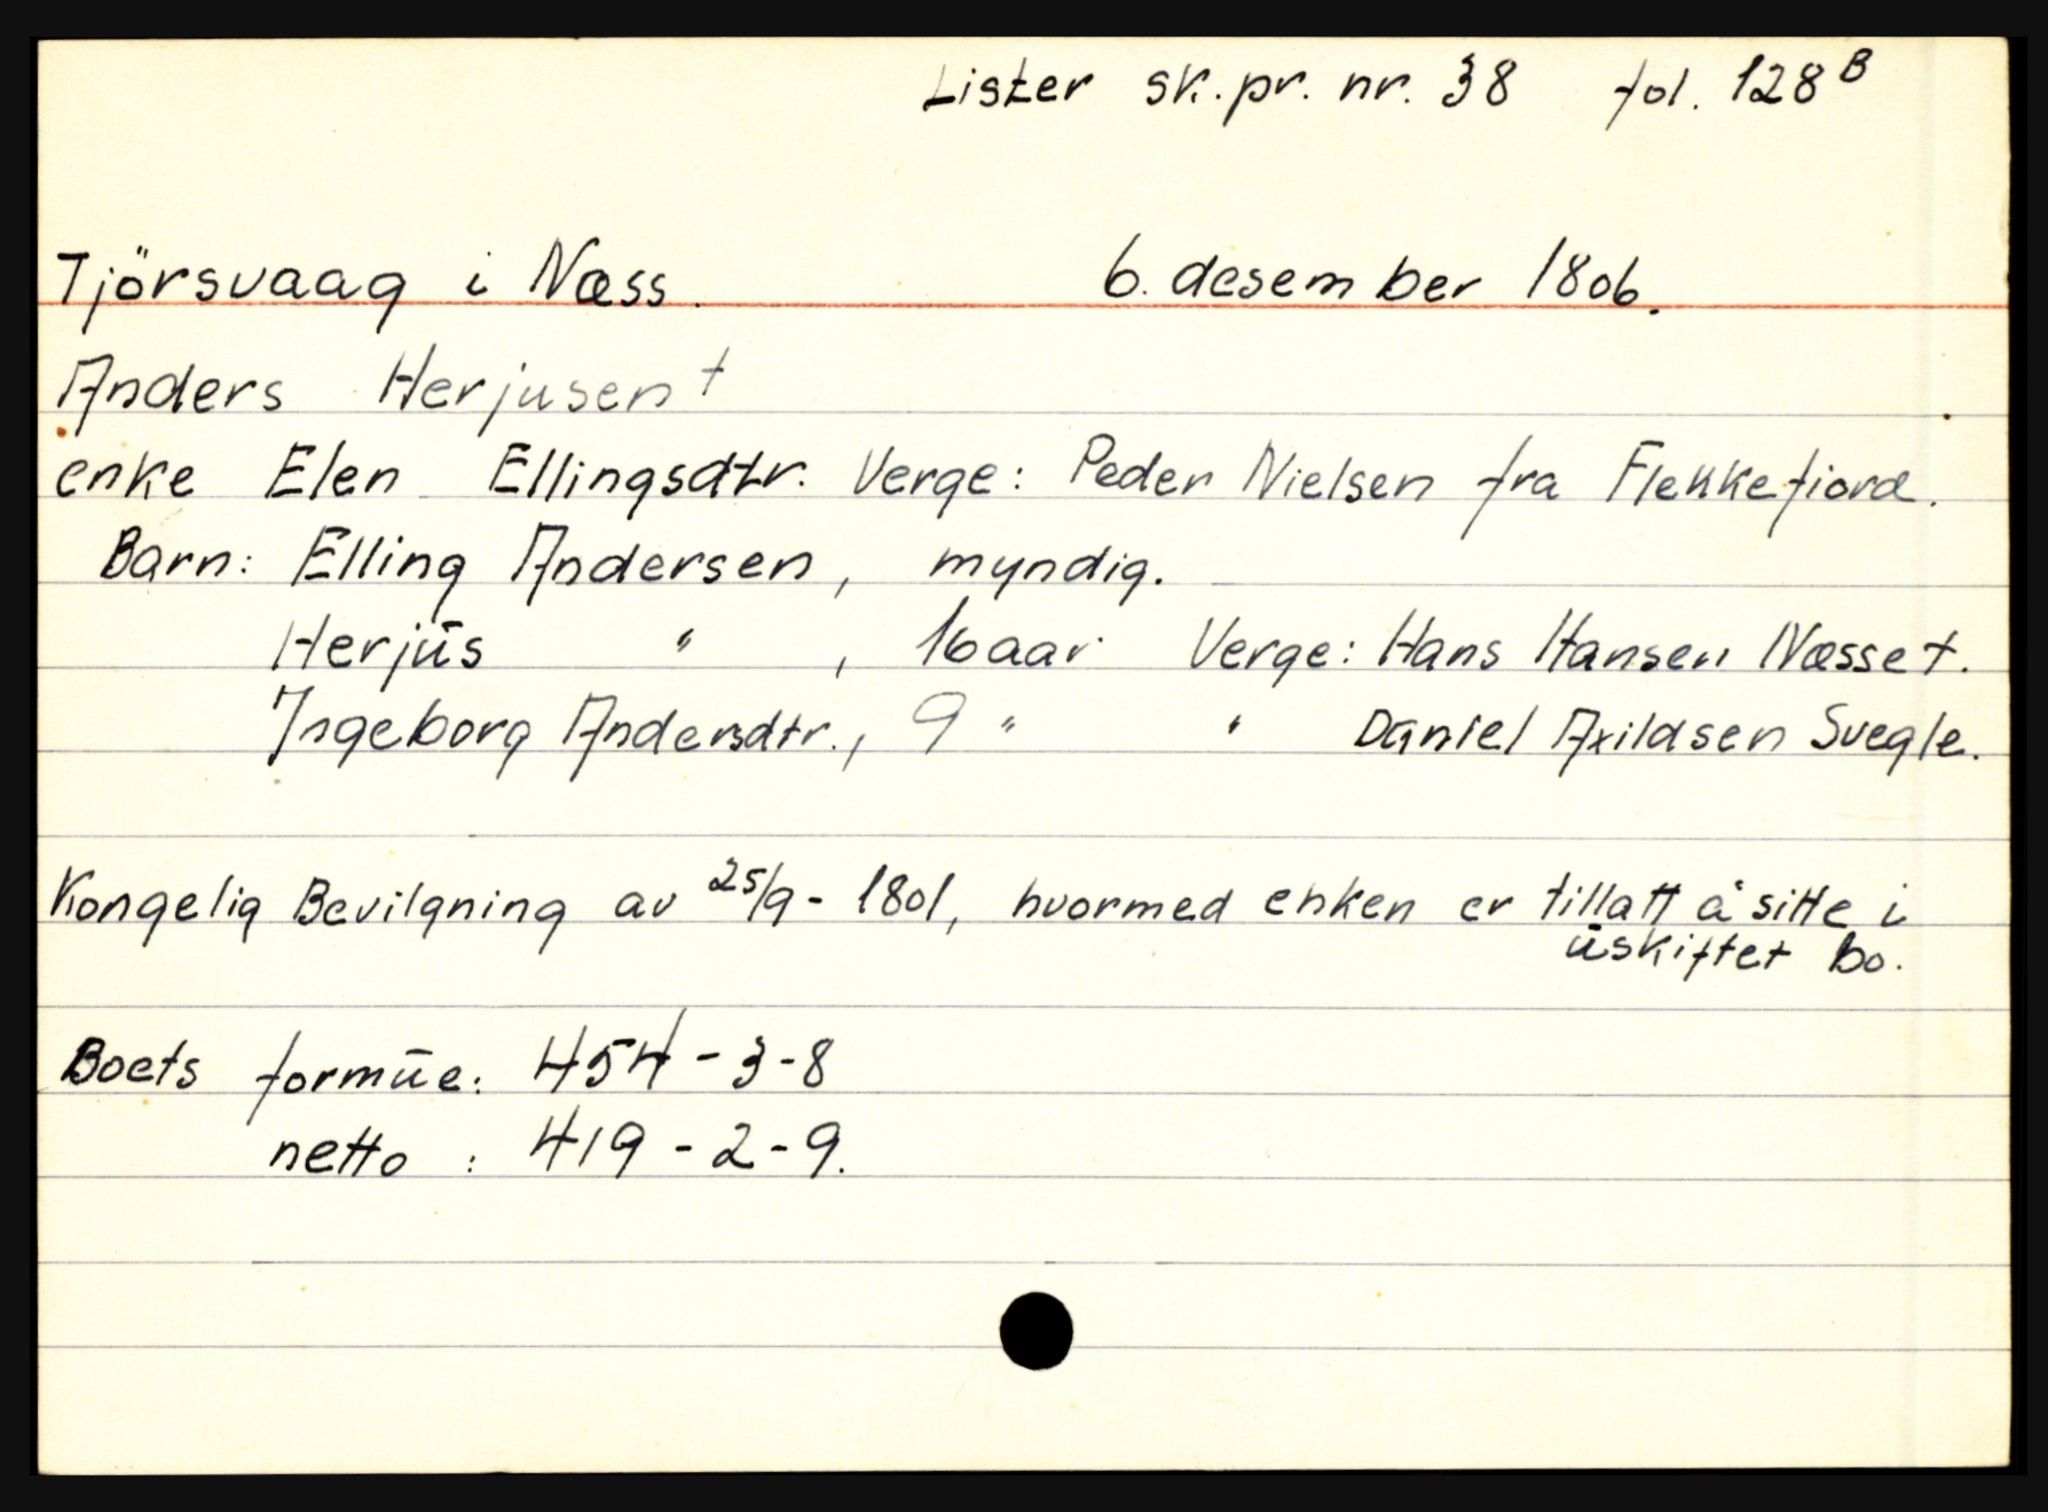 Lister sk.pr. nr. 38 fol. 128 B
Tjörsvaag i Næss. 6. desember 1806.
Anders Herjusen †
enke Elen Ellingsdtr. Verge: Peder Nielsen fra Flekkefiord.
Barn: Elling Andersen, myndig.
Herjūs " , 16 aar Verge: Hans Hansen Næsset.
Ingeborg Andersdtr., 9 " " Daniel Axildsen Svegle.
Kongelig Bevilgning av 25/9 - 1801, hvormed enken er tillatt å sitte i
ūskiftet bo.
Boets formūe: 454 - 3 - 8
netto : 419 - 2 - 9.